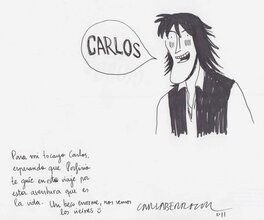 CARLOS
Para mi tocayo Carlos,
esperando que Porfirio
te guíe en este viaje por
esta aventura que es
la vida. Un beso enorme, nos vemos
los
CARLA BERROCAL